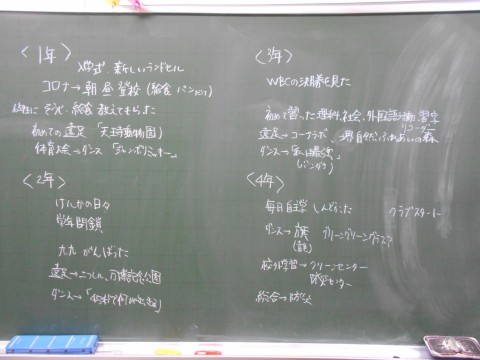 〈1年〉
入学式 新しいランドセル
コロナ→朝 昼 登校(給食 パンだけ)
そうじ・給食 教えてもらった
初めての遠足「天王寺動物園」
体育大会→ダンス「ジャンボリミッキー」
〈2年〉
けんかの日々
学年閉鎖
九九 がんばった
遠足→ニフレル、万博記念公園
ダンス→
〈3年〉
WBCの決勝を見た
初めて習った 理科、社会、外国語活動、習字
リコーダー
遠足→コープラボ、堺自然ふれあいの森
ダンス→
〈4年〉
毎日自主学 しんどかった クラブスタート
ダンス→旗
グリーングリーングラス
校外学習→クリーンセンター
防災センター
総合→防災